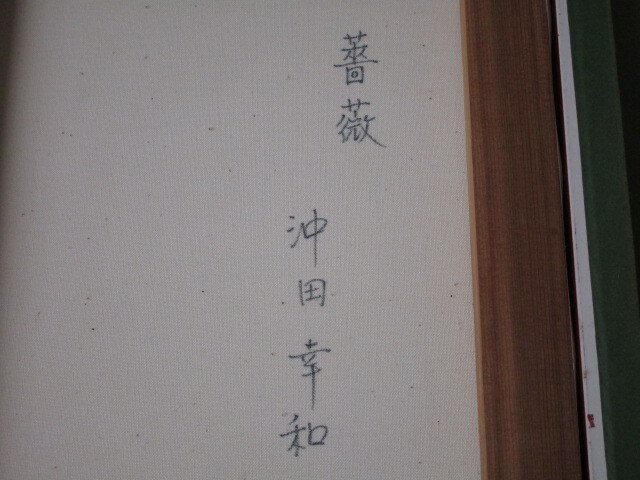 薔薇
沖田幸和